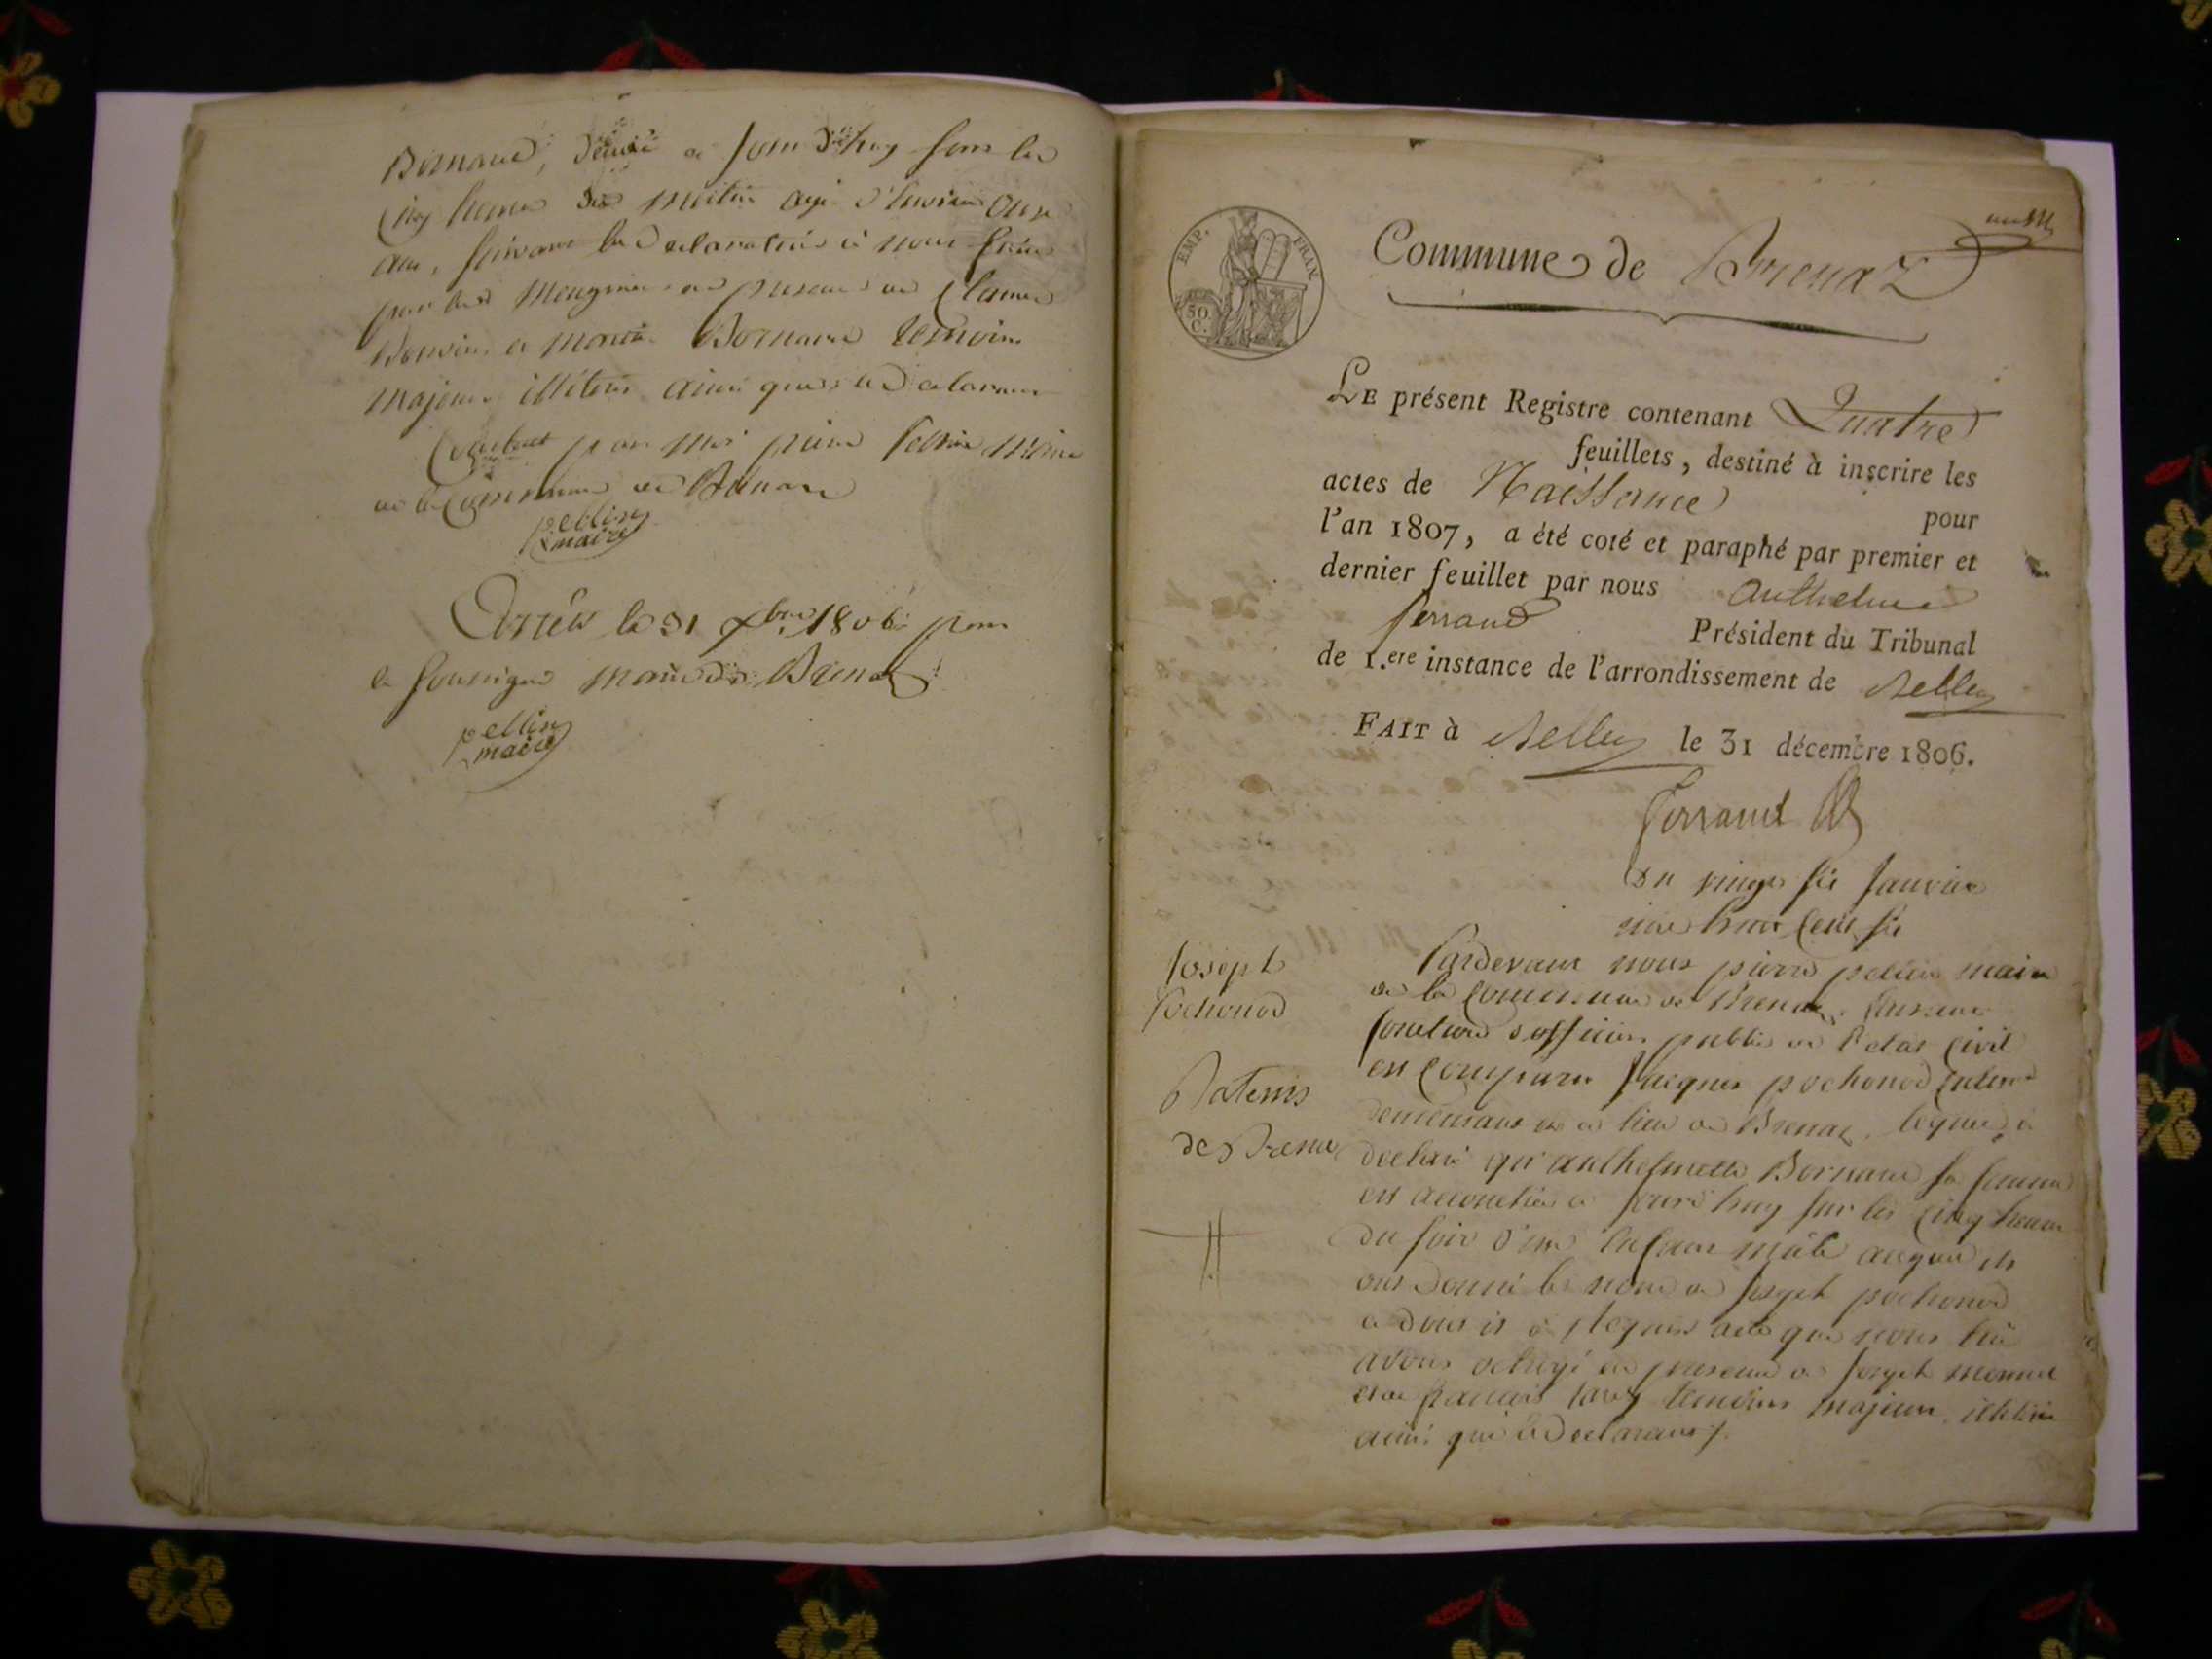 Bornand, décédé a Jourdhuy sur les
Cinq heures du matin agé d'Environ onze
ans, suivant la déclaration à nous faitte
par
Bonvin et Bornand temoins
majeurs illiterés ainsi que le declarant
Constaté par moi pierre pellin maire
de la Commune de Brenaz
pellin
maire
Arrêté le 31 Xbre 1806 par
le soussigné maire de Brenaz
pellin
maire
EMP. FRAN.
50.
C.
Commune de Brenaz
LE présent Registre contenant Quatre
feuillets, destiné à inscrire les
actes de Naissance pour
l'an 1807, a été coté et paraphé par premier et
dernier feuillet par nous Anthelme
ferrand Président du Tribunal
de 1.ere instance de l'arrondissement de Belley
FAIT à Belley le 31 décembre 1806.
Ferrand
Du vingt six Janvier
mil huit Cent six
Joseph
pochonod
Natemis
de Brenaz
Pardevant nous pierre pellin maire
de la Commune de Brenaz faisant
fonctions d'officier public de l'etat Civil
est Comparu Jacques pochonod
demeurant en ce lieu de Brenaz lequel a
declaré qu'anthelmette Bornand sa femme
est accouchée a Jourd'huy sur les Cinq heures
du soir d'un Enfant mâle auquel ils
ont donné le nom de Joseph pochonod
a dont il a requis acte que nous lui
avons octroyé en presence de Joseph monnet
et de francois temoins majeurs illiterés
ainsi que le Declarant